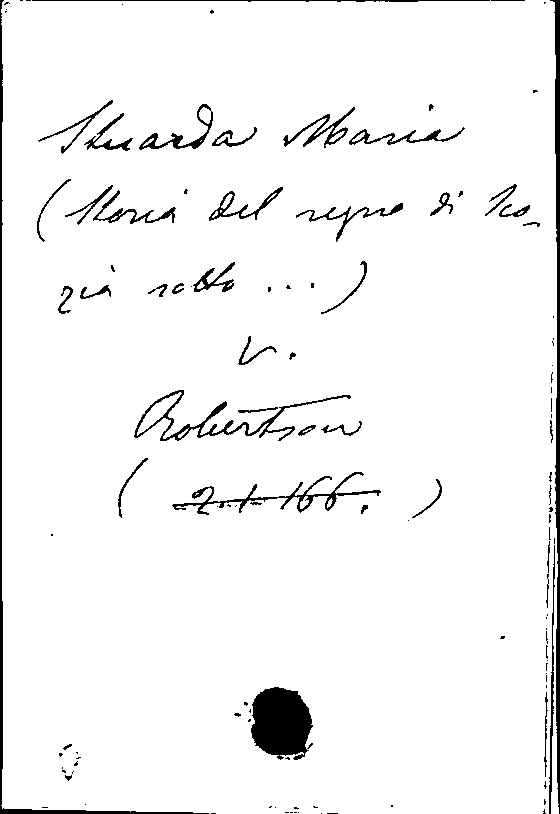 Stuarda Maria
(Storia del regno di Sco-
zia sotto ...)
v.
Robertson
( 2.1.166. )